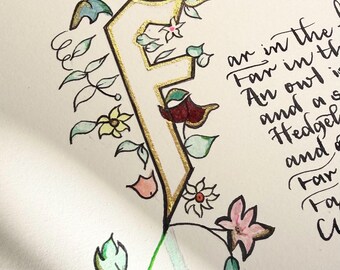 F
ar in the
Far in th
An owl i
and a s
Hedgeh
and o
Far
Fa